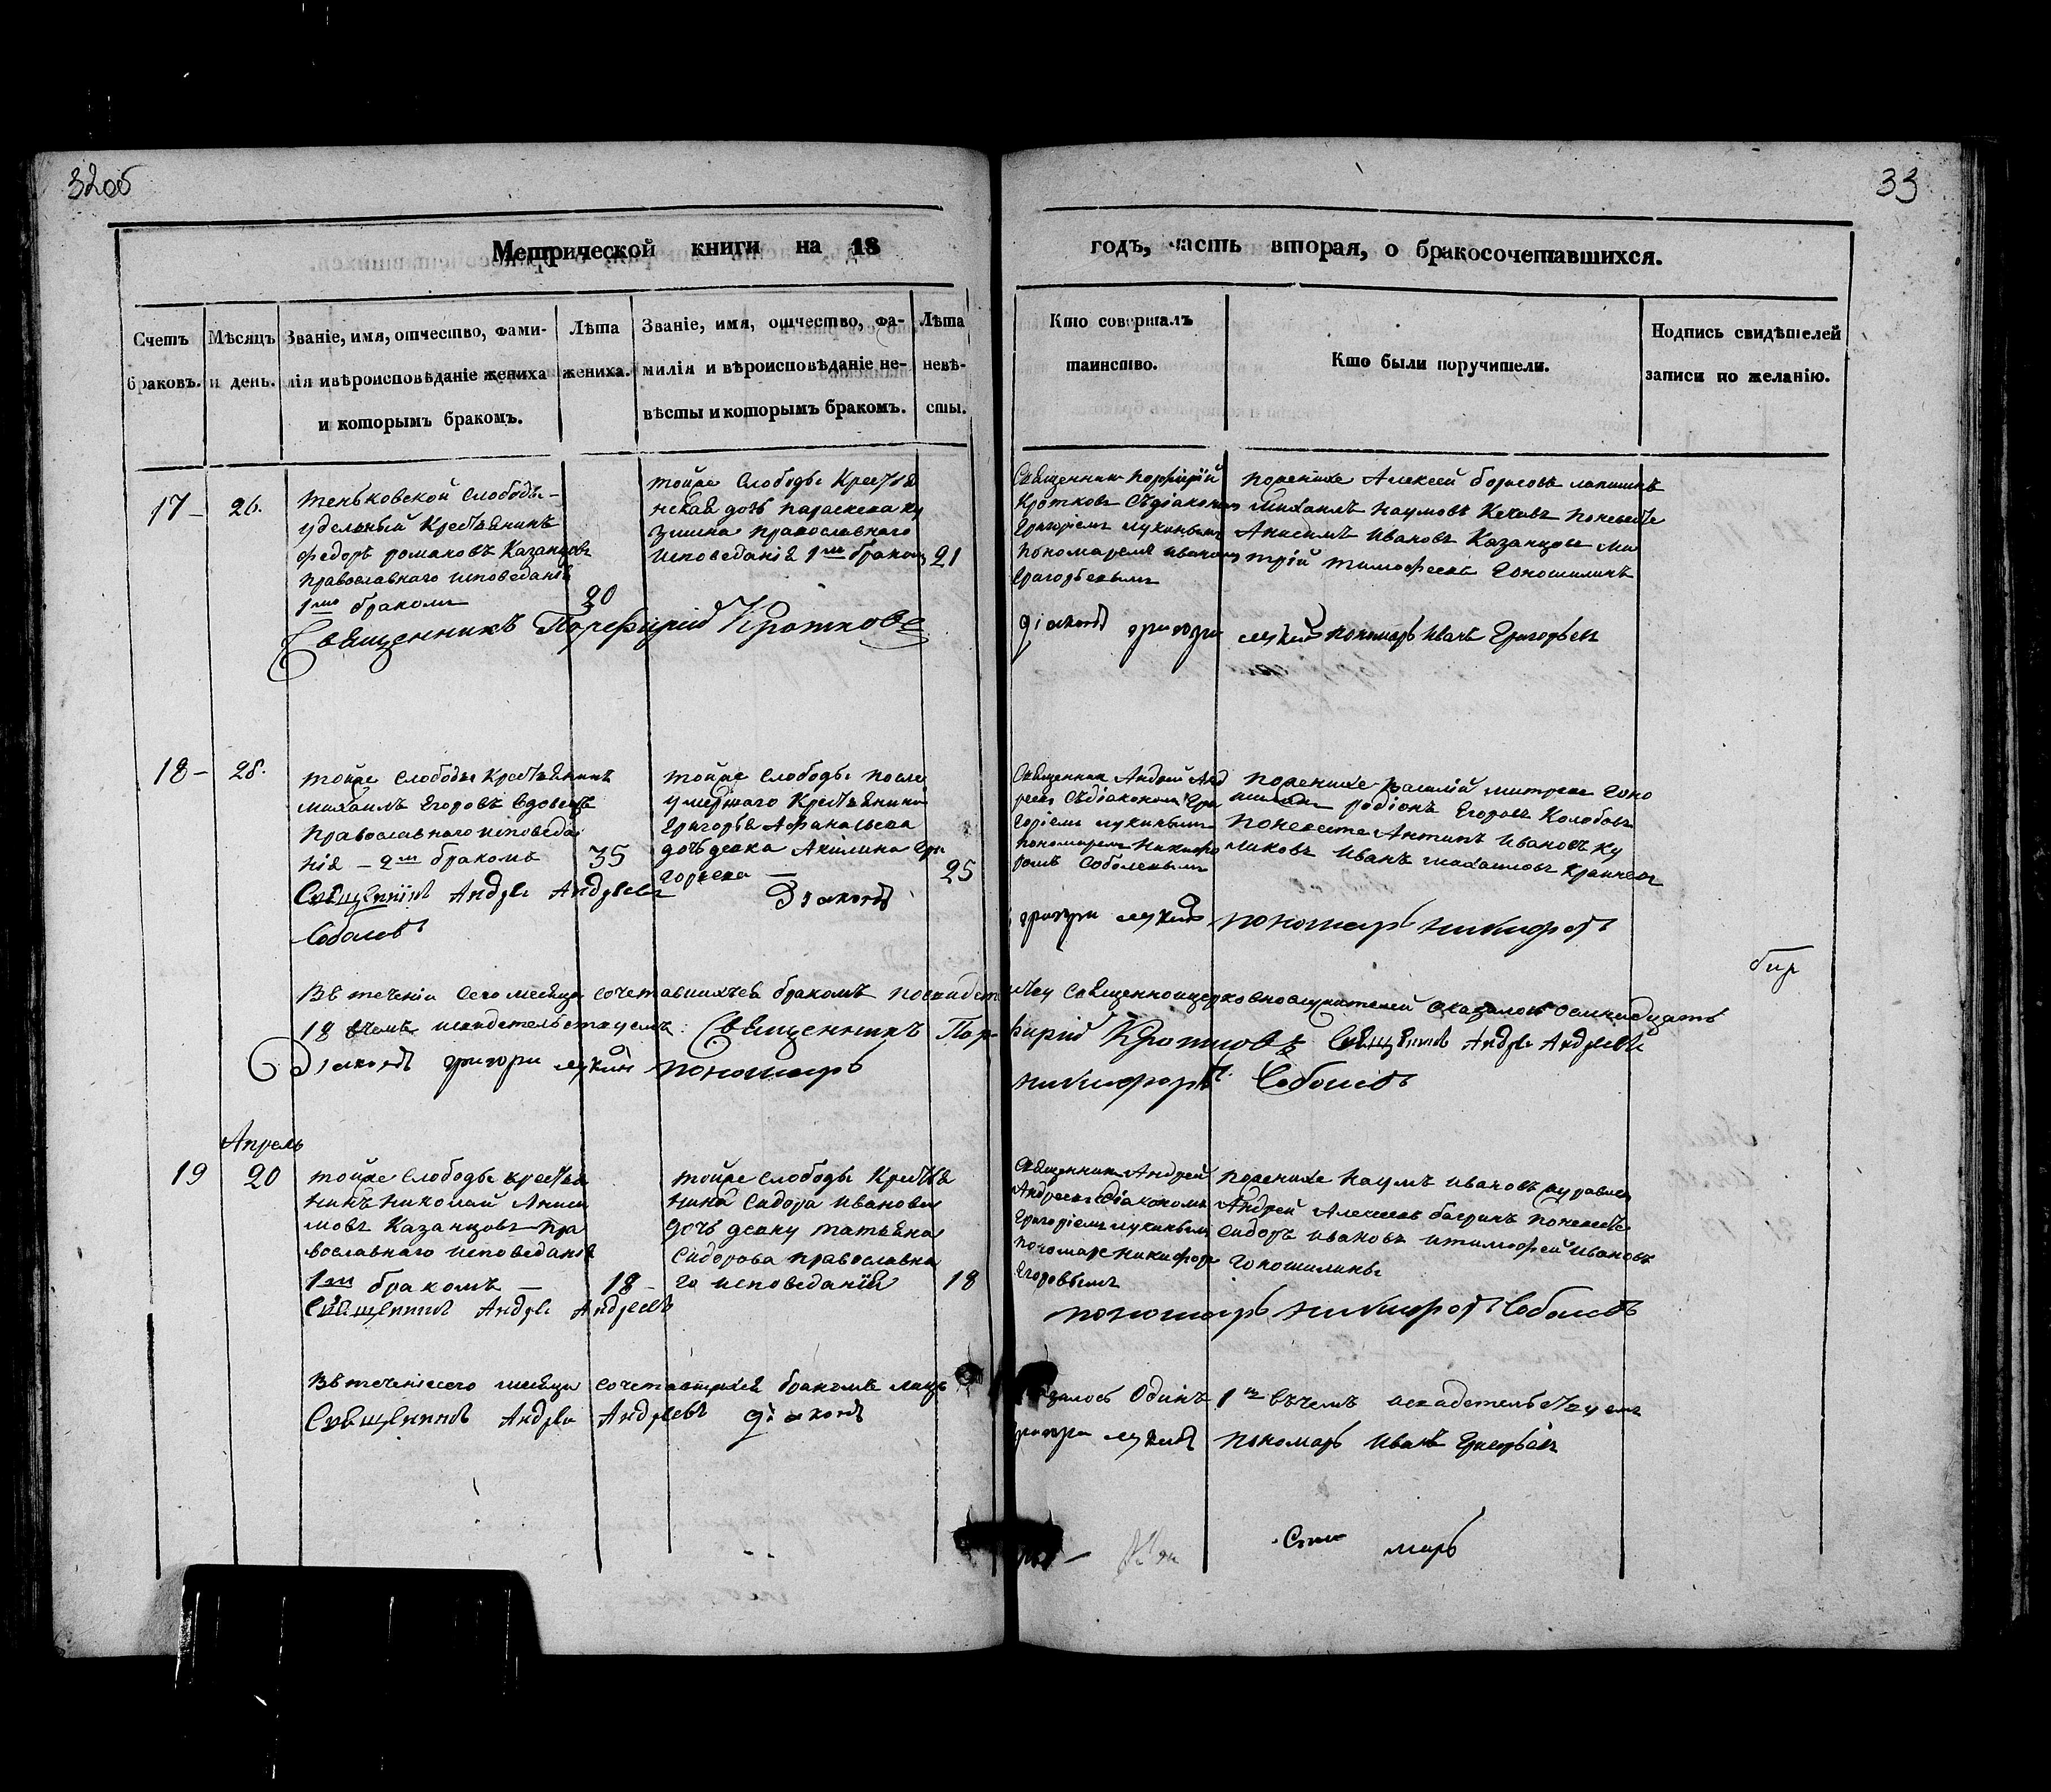 32об
33
Метрической книги на 18
годъ, часть вторая, о бракосочетавшихся.
Счетъ браковъ.
Мѣсяцъ и день.
Званіе, имя, отчество, фами-
лія и вѣроисповѣданіе жениха
и которымъ бракомъ.
Лѣта
жениха.
Званіе, имя, отчество, фа-
милія и вѣроисповѣданіе не-
вѣсты и которымъ бракомъ.
Лѣта
невѣ-
сты.
Кто совершалъ
таинство.
Кто были поручители.
Подпись свидѣтелей
записи по желанію.
17
26.
теньковской слободы
удельный крестьянинъ
федоръ романовъ Казанцовъ
православнаго исповеданія
1мъ бракомъ
20
тойже слободы крестья
нская дочь параскева ку
змина православнаго
исповеданія 1мъ бракомъ
21
Священникъ порфирій
Кротковъ съдіакономъ
Григоріемъ лукинымъ
пономаремъ иваномъ
Григорьевымъ
пожениху Алексей борисовъ лапшинъ
михаилъ наумовъ поневесте
Анисимъ Ивановъ Казанцовъ ми
трій тимофеевъ Гоношилинъ
Священникъ Порфирій Кротковъ
діаконъ григори лукинъ пономарь Иванъ Григорьевъ
18
28.
тойже слободы крестьянинъ
михаилъ Егоровъ вдовецъ
православнаго исповеда
нія 2мъ бракомъ
35
тойже слободы после
умершаго крестьянина
Григорья Афанасьева
дочь девка Акилина Гри
горьева
25
Священникъ Андрей Анд
реевъ съдіакономъ Гри
горіемъ лукинымъ
пономаремъ Никифо
ромъ Соболевымъ
пожениху василій митреевъ Гоно
шилинъ родіонъ Егоровъ Колобовъ
поневесте Антипъ Ивановъ ку
ликовъ Иванъ михаиловъ
Священникъ Андрей Андреевъ
Діаконъ
григори лукинъ пономарь никифоръ
Соболевъ
Въ теченіи сего месяца сочетавшихся бракомъ священноицерковнослужителей оказалось осмнадцать
18 въчемъ исвидетельствуемъ: Священникъ Порфирій Кротковъ Священникъ Андрей Андреевъ
Діаконъ григори лукинъ пономарь никифоръ Соболевъ
Апрель
19
20
тойже слободы крестья
нинъ николай Аниси
мовъ Казанцовъ пра
вославнаго исповеданія
1мъ бракомъ
18
тойже слободы крестья
нина Сидора Иванова
дочь девку татьяна
Сидорова православна
го исповеданія
18
Священникъ Андрей
Андреевъ съдіакономъ
Григоріемъ лукинымъ
пономаремъ никифоромъ
Егоровымъ
пожениху наумъ ивановъ
Андрей Алексеевъ багринъ поневесте
сидоръ ивановъ итимофей ивановъ
Гоношилины
Священникъ Андрей Андреевъ
пономарь никифоръ Соболевъ
Въ теченіе сего месяца сочетавшихся бракомъ лицъ оказалось Одинъ 1нъ въчемъ исвидетельствуемъ
Священникъ Андрей Андреевъ діаконъ григори лукинъ пономарь Иванъ Григорьевъ